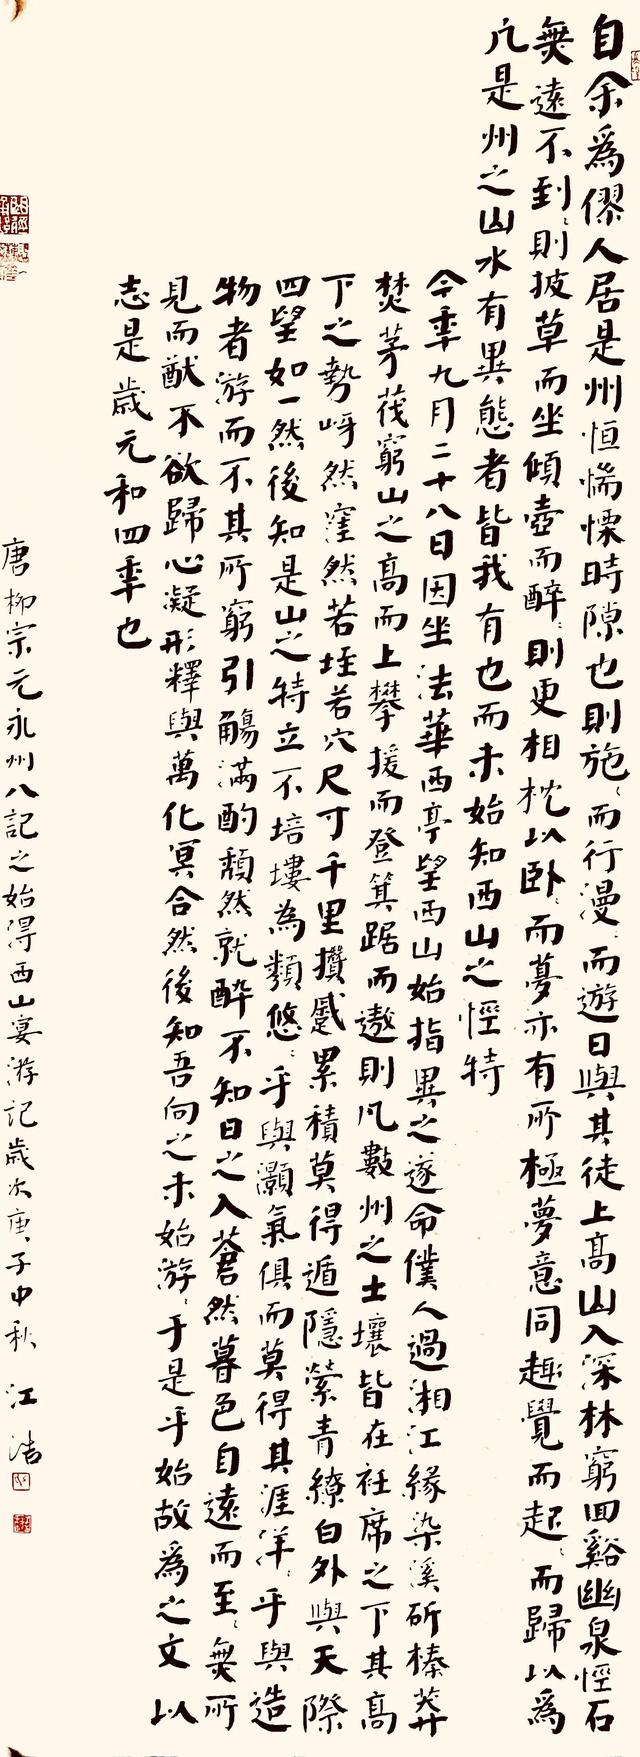 自余為僇人居是州恒惴慄時隙也則施〻而行漫〻而遊日與其徒上高山入深林窮回谿幽泉怪石
無遠不到〻則披草而坐傾壺而醉〻則更相枕以臥〻而夢亦有所極夢意同趣覺而起〻而歸以為
凡是州之山水有異態者皆我有也而未始知西山之怪特
今年九月二十八日因坐法華西亭望西山始指異之遂命僕人過湘江緣染溪斫榛莽
焚茅茷窮山之高而上攀援而登箕踞而遨則凡數州之土壤皆在衽席之下其高
下之勢岈然窪然若垤若穴尺寸千里攢蹙累積莫得遁隱縈青繚白外與天際
四望如一然後知是山之特立不培塿為類悠〻乎與灝氣俱而莫得其涯洋〻乎與造
物者游而不其所窮引觴滿酌頹然就醉不知日之入蒼然暮色自遠而至〻無所
見而猷不欲歸心凝形釋與萬化冥合然後知吾向之未始游〻于是乎始故為之文以
志是歲元和四年也
唐柳宗元永州八記之始得西山宴游記歲次庚子中秋 江浩